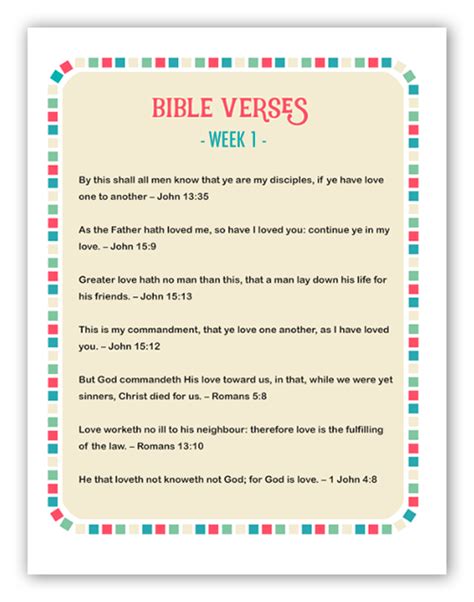 BIBLE VERSES
- WEEK 1 -
By this shall all men know that ye are my disciples, if ye have love
one to another – John 13:35
As the Father hath loved me, so have I loved you: continue ye in my
love. – John 15:9
Greater love hath no man than this, that a man lay down his life for
his friends. – John 15:13
This is my commandment, that ye love one another, as I have loved
you. – John 15:12
But God commandeth His love toward us, in that, while we were yet
sinners, Christ died for us. – Romans 5:8
Love worketh no ill to his neighbour: therefore love is the fulfilling
of the law. – Romans 13:10
He that loveth not knoweth not God; for God is love. – 1 John 4:8